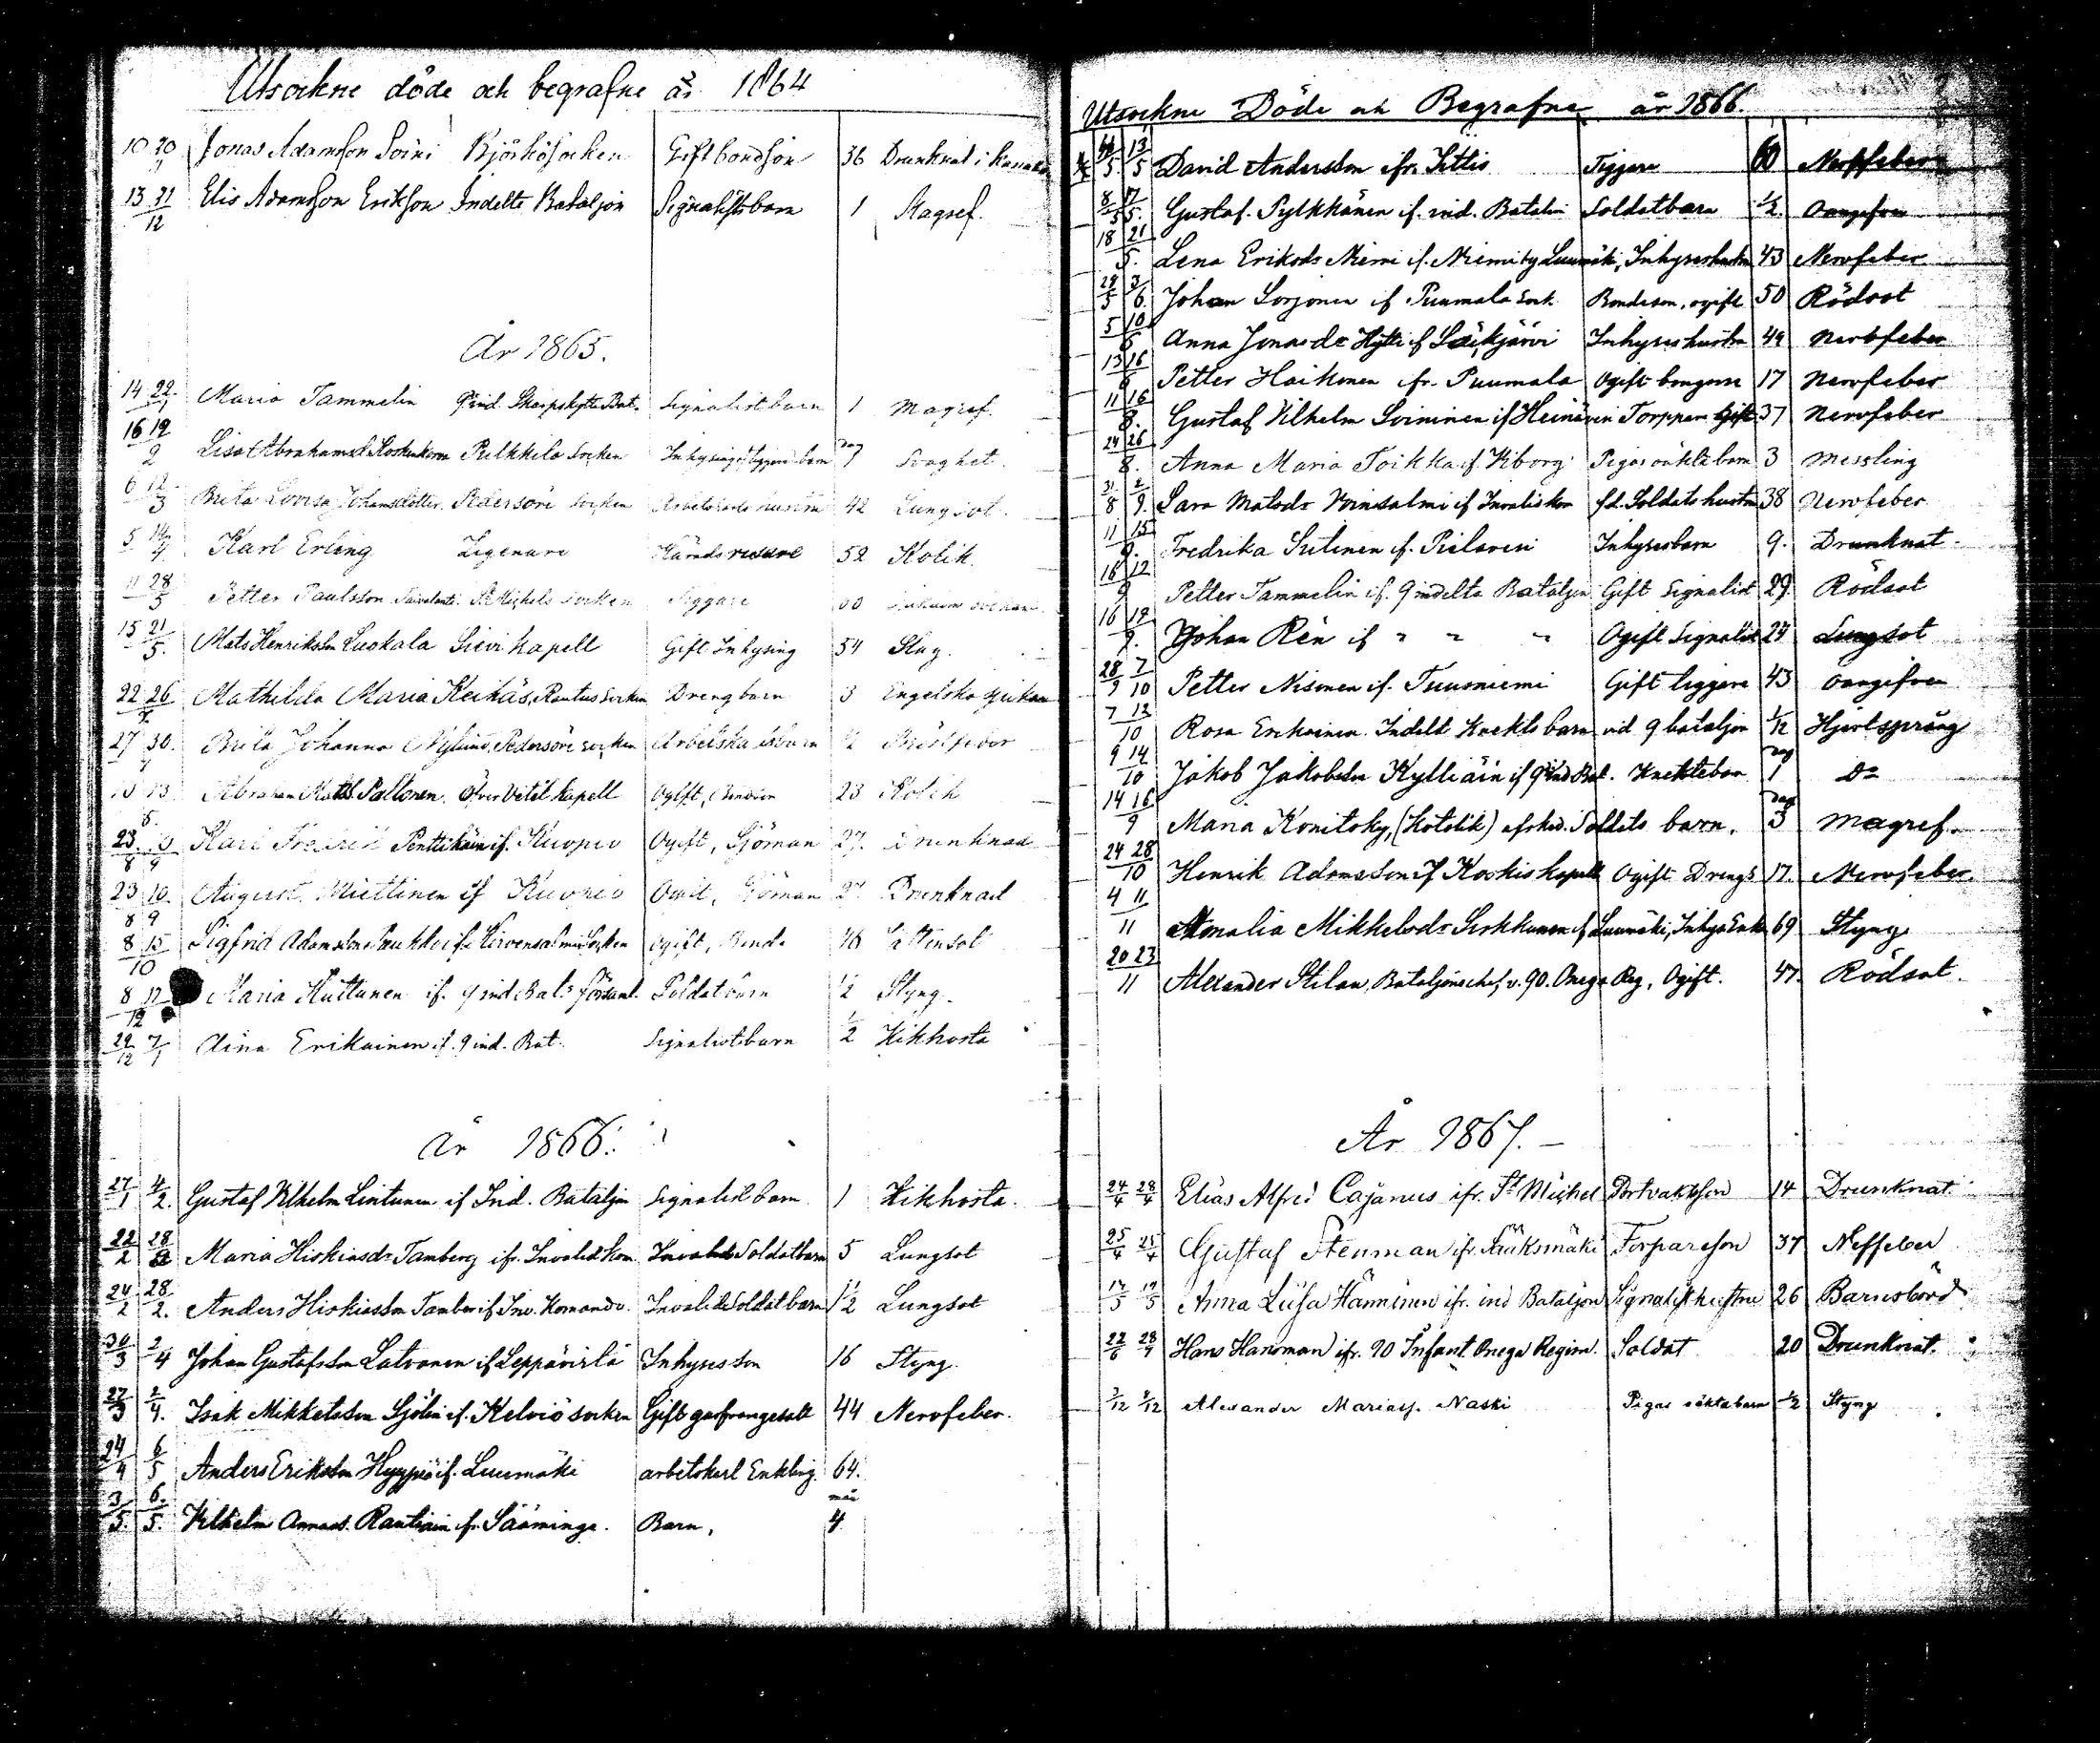 Utsockne döde och begrafne år 1864
10 30 Jonas Adamsson Soini Björkö socken Gift bondson 36 Drunknat i kanalen
13 21/12 Elis Adamsson Eriksson Indelte Bataljon Signalistbarn 1 Magref.
År 1865.
14 22/1 Maria Tammelin 9 ind. Skarpskytte Bat. Signalist barn 1 Magref.
16 19/2 Lisa Abrahamsd. Pulkkila Socken Inhysing barn dag 7 Svaghet.
6 12/3 Brita Lovisa Johansdotter Pedersöre socken Arbetskarls hustru 42 Lungsot.
5 14/4 Karl Erling Zigenare 52 Kolik.
11 28/5 Petter Paulsson St Michels socken Tiggare
15 21/5. Mats Henriksson Luokala Sievi kapell Gift Inhysing 54 Slag.
22 26 Mathilda Maria Keikäs, Rautus socken Drengbarn 3 Engelska sjukan
27 30. Brita Johanna Nylund, Pedersöre socken Arbetskarlsbarn ½
10 13 Abraham Matts. Paltonen. Öfver Vetil kapell Ogift, 23 Kolik
23/8 Karl Fredrik Penttikäin if. Kuopio Ogift, Sjöman 27. Drunknad
23/8 10./9 August Miettinen if Kuopio Ogift, Sjöman Drunknad
8 15/10 Sigfrid Adamsson Paukku if. Hirvensalmi Socken Ogift, Bonde 46 Vattusot
8 17/12 Maria Huttunen if. 9 ind. Bat:s församl. Soldatbarn ½ Styng.
29/12 7/1 Aina Erikainen if. 9 ind. Bat. Signalistbarn ½ Kikhosta
År 1866.
27/1 4/2. Gustaf Vilhelm Lintunen if Ind. Bataljon Signalist barn 1 Kikhosta.
22/2 28/2 Maria Hiskiasdr Tamberg ifr. Invalid kom. Invalid Soldatbarn 5 Lungsot
24/2 28/2. Anders Hiskiasson Tamber if Inv. Komando. Invalid Soldatbarn 1½ Lungsot
30/3 2/4 Johan Gustafsson Latvanen if Leppävirta Inhyses son 16 Styng
27/3 2/4. Isak Mikkelsson Sjölin if. Kelviö socken Gift 44 Nervfeber.
24/4 6/5 Anders Eriksson Hyyppiä if. Luumäki arbetskarl Enkling. 64.
3/5. 6/5. Vilhelm Annas. Rantiain ifr. Sääminge. Barn, mån 4
Utsockne Döde och Begrafne år 1866.
13/5 David Andersson ifr. Sittis Tiggare 60 Nervfeber
8/5 17/5. Gustaf Pylkkänen if. ind. Batalin Soldatbarn ½
18 21/5. Lena Eriksdr Niemi if. Niemi by Luumäki, Inhyseshustru 43 Nervfeber
29/5 3/6. Johan Sorjonen if Puumala Sock. Bondeson, ogift 50 Rödsot
5 10/6 Anna Jonasdr Hytti if Säkjärvi Inhyses hustru 44 Nervfeber
13 16/6 Petter Haikonen ifr. Puumala Ogift 17 Nervfeber
11 16/8. Gustaf Vilhelm Soininen if Heinävesi Torppare Gift 37 Nervfeber
24 26/8. Anna Maria Toikka if. Viborg Pigas oäkta barn 3 Messling
31/8 2/9. Sara Matsdr Voinsalmi if Invalid kom fd. Soldats hustru 38 Nervfeber
11 15/9. Fredrika Sutinen if. Pielavesi Inhysesbarn 9. Drunknat.
16 12/9 Petter Tammelin if. 9 indelta Bataljon Gift Signalist 29. Rödsot
16 19/9. Johan Rén if " " " Ogift Signalist 24 Lungsot
28/9 7/10 Petter Nissinen if. Tuusniemi Gift tiggare 43
7 12/10 Rosa Erikainen. Indelt Knekts barn vid 9 bataljon 1/12 Hjertsprång
9 14/10 Jakob Jakobsson Kylliäin if 9 Ind Bat. Knektebarn dag 1 Do
14 16/9 Maria Konitsky, (Kotolik) afsked. Soldats barn. dag 3 Magref.
24 28/10 Henrik Adamsson if Koskis kapell Ogift Dreng 17. Nervfeber.
4 11/11 Amalia Mikkelsdr Sirkkunen if Luumäki, Inhys Enka 69 Styng
20 23/11 Alexander Stilan, Bataljonschef, v. 90. Onega Reg, Ogift. 47. Rödsot.
År 1867.
24/4 28/4 Elias Alfred Cajanus ifr. St Michel Portvaktson 14 Drunknat.
25/4 28/4 Gustaf Stenman ifr. Sääksmäki Torpareson 37 Neffeber
17/5 19/5 Anna Luisa Hänninen ifr. ind Bataljon Signalisthustru 26 Barnsbörd
22/6 28/7 Hans Hansman ifr. 90 Infant. Onega Regim. Soldat 20 Drunknat.
3/12 8/12 Alexander Mariasp. Naski Pigas oäkta barn ½ Styng